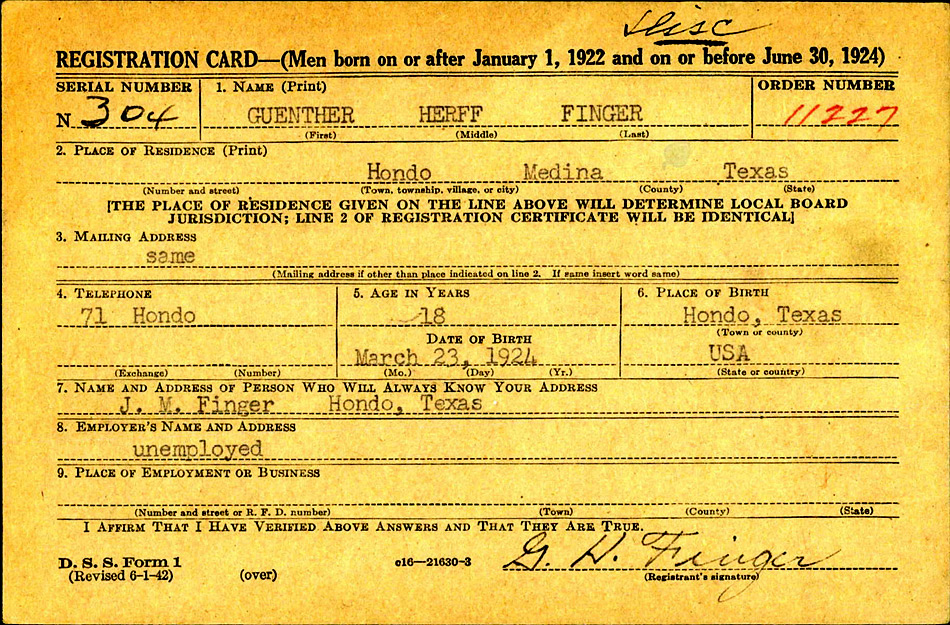 Disc
REGISTRATION CARD—(Men born on or after January 1, 1922 and on or before June 30, 1924)
SERIAL NUMBER 1. NAME (Print) ORDER NUMBER
N 304 GUENTHER HERFF FINGER 11227
(First) (Middle) (Last)
2. PLACE OF RESIDENCE (Print)
Hondo Medina Texas
(Number and street) (Town, township, village, or city) (County) (State)
[THE PLACE OF RESIDENCE GIVEN ON THE LINE ABOVE WILL DETERMINE LOCAL BOARD
JURISDICTION; LINE 2 OF REGISTRATION CERTIFICATE WILL BE IDENTICAL]
3. MAILING ADDRESS
same
(Mailing address if other than place indicated on line 2. If same insert word same)
4. TELEPHONE 5. AGE IN YEARS 6. PLACE OF BIRTH
71 Hondo 18 Hondo, Texas
(Town or county)
DATE OF BIRTH
March 23, 1924 USA
(Exchange) (Number) (Mo.) (Day) (Yr.) (State or country)
7. NAME AND ADDRESS OF PERSON WHO WILL ALWAYS KNOW YOUR ADDRESS
J. M. Finger Hondo, Texas
8. EMPLOYER'S NAME AND ADDRESS
unemployed
9. PLACE OF EMPLOYMENT OR BUSINESS
(Number and street or R. F. D. number) (Town) (County) (State)
I AFFIRM THAT I HAVE VERIFIED ABOVE ANSWERS AND THAT THEY ARE TRUE.
G. H. Finger
D. S. S. Form 1 c16—21630-3
(Revised 6-1-42) (over) (Registrant's signature)